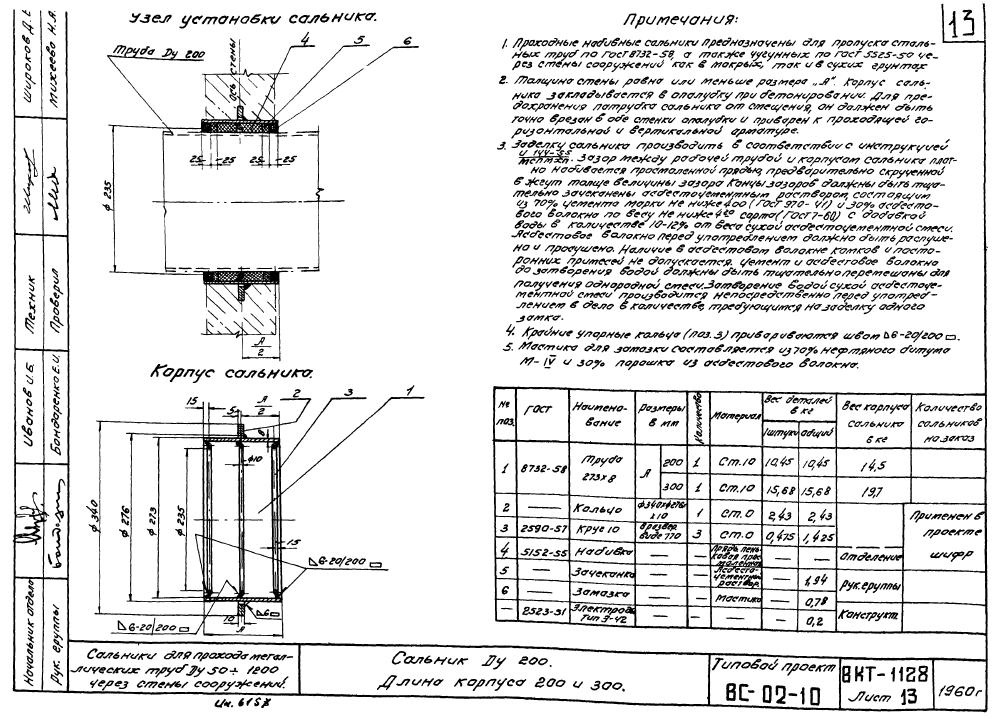 Узел установки сальника.
Труда Dy 200
ось стены
4
5
6
25
25
25
25
ф 235
А
2
Корпус сальника.
15
5
А
2
2
3
1
ф10
ф340
ф 276
ф 273
ф 235
15
6-20/200
6-20/200
10
А
6
Примечания:
13
1. Проходные набивные сальники предназначены для пропуска сталь-
ных труб по Гост 8732-58, а также чугунных по Гост 5525-50 че-
рез стены сооружений как в мокрых, так и в сухих грунтах
2. Толщина стены равна или меньше размера „А". Корпус саль-
ника закладывается в опалубку при бетонировании. Для пре-
дохранения патрубка сальника от смещения, он должен быть
точно врезан в обе стенки опалубки и приварен к проходящей го-
ризонтальной и вертикальной арматуре.
3. Заделку сальника производить в соответствии с инструкцией
и 144-55
мспмхп. Зазор между рабочей трубой и корпусом сальника плот-
но набивается просмоленной прядью, предварительно скрученной
в жгут толще величины зазора. Концы зазоров должны быть тща-
тельно зачеканены асбестоцементным раствором, состоящим
из 70% цемента марки не ниже 400 (Гост 970-41) и 30% асбесто-
вого волокна по весу не ниже 4го сорта (Гост 7-60) с добавкой
воды в количестве 10-12% от веса сухой асбестоцементной смеси.
Асбестовое волокно перед употреблением должно быть распуше-
но и просушено. Наличие в асбестовом волокне комков и посто-
ронних примесей не допускается. Цемент и асбестовое волокно
до затворения водой должны быть тщательно перемешаны для
получения однородной смеси. Затворение водой сухой асбестоце-
ментной смеси производится непосредственно перед употреб-
лением в дело в количестве, требующимся на заделку одного
замка.
4. Крайние упорные кольца (поз. 3) привариваются швом 6-20/200
5. Мастика для замазки составляется из 70% нефтяного битума
М-IV и 30% порошка из асбестового волокна.
№ поз. ГОСТ Наимено-вание Размеры в мм Количество Материал Вес деталей в кг 1 штуки общий Вес корпуса сальника в кг Количество сальников на заказ
1 8732-58 Труба 273х8 А 200 1 Ст.10 10,45 10,45 14,5
300 1 Ст.10 15,68 15,68 19,7
2 — Кольцо ф340хф276 х10 1 Ст.0 2,43 2,43
3 2590-57 Круг 10 в развер. виде 770 3 Ст.0 0,475 1,425
4 5152-55 Набивка — — Прядь пень-ковая прос-моленная — —
5 — Зачеканка — — Асбесто-цементный раствор. — 1,94
6 — Замазка — — Мастика — 0,78
— 2523-51 Электроды тип Э-42 — — — — 0,2
Применен в
проекте
шифр
отделение
Рук. группы
Конструкт.
Широков Д. Е
Михеева Н. А.
Техник
Проверил
Иванов И. Б.
Бондаренко Е. И.
Начальник отдел
Рук. группы
Сальники для прохода метал-
лических труб Dy 50÷1200
через стены сооружений.
Сальник Dy 200.
Длина корпуса 200 и 300.
Типовой проект
ВС-02-10
ВКТ-1128
Лист 13
1960г
Ин. 6157